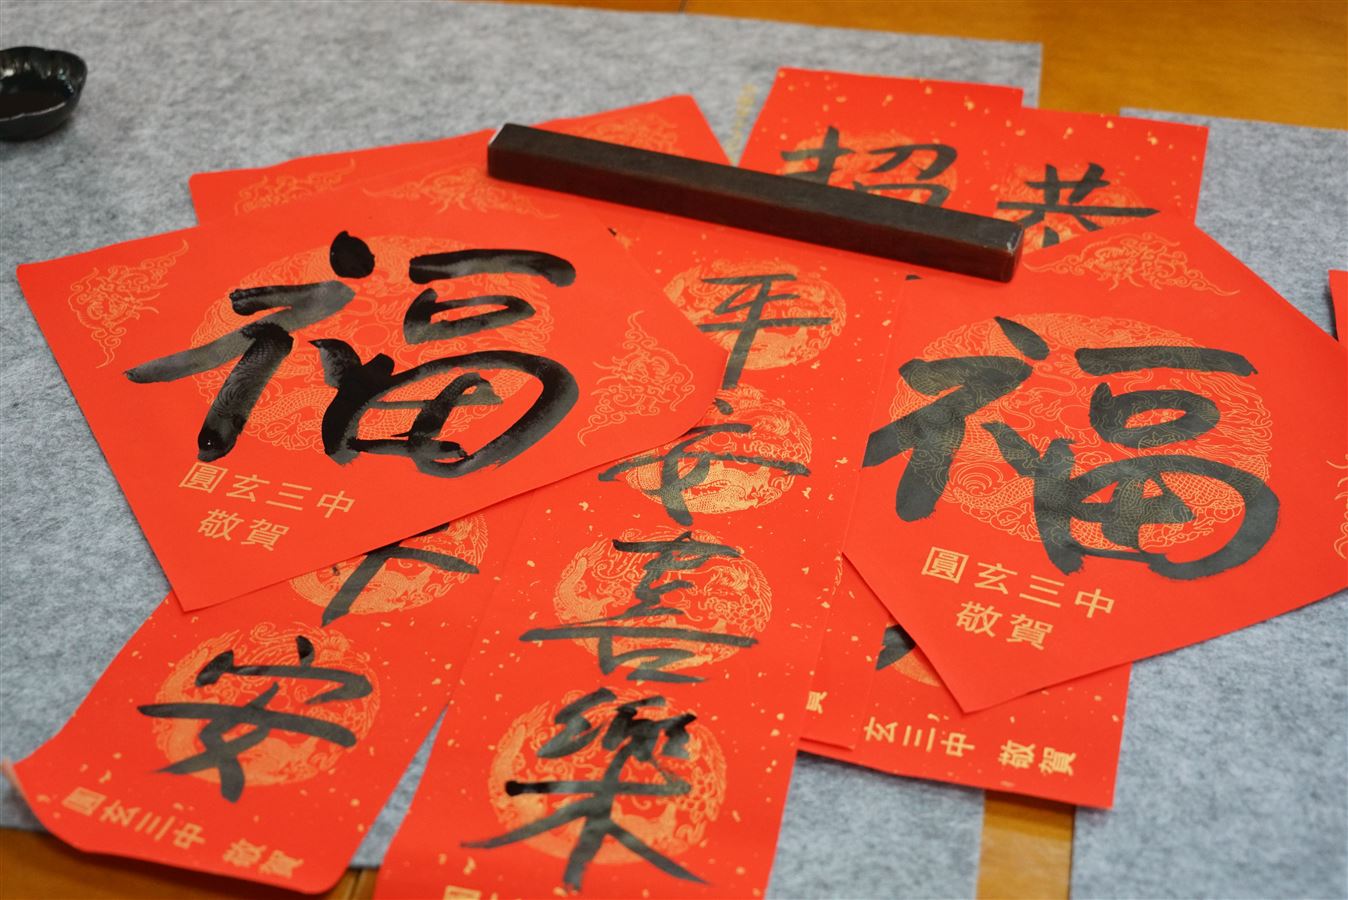 福
圓玄三中
敬賀
招
恭
平安喜樂
福
圓玄三中
敬賀
安
圓玄三中 敬賀
玄三中 敬賀
賀